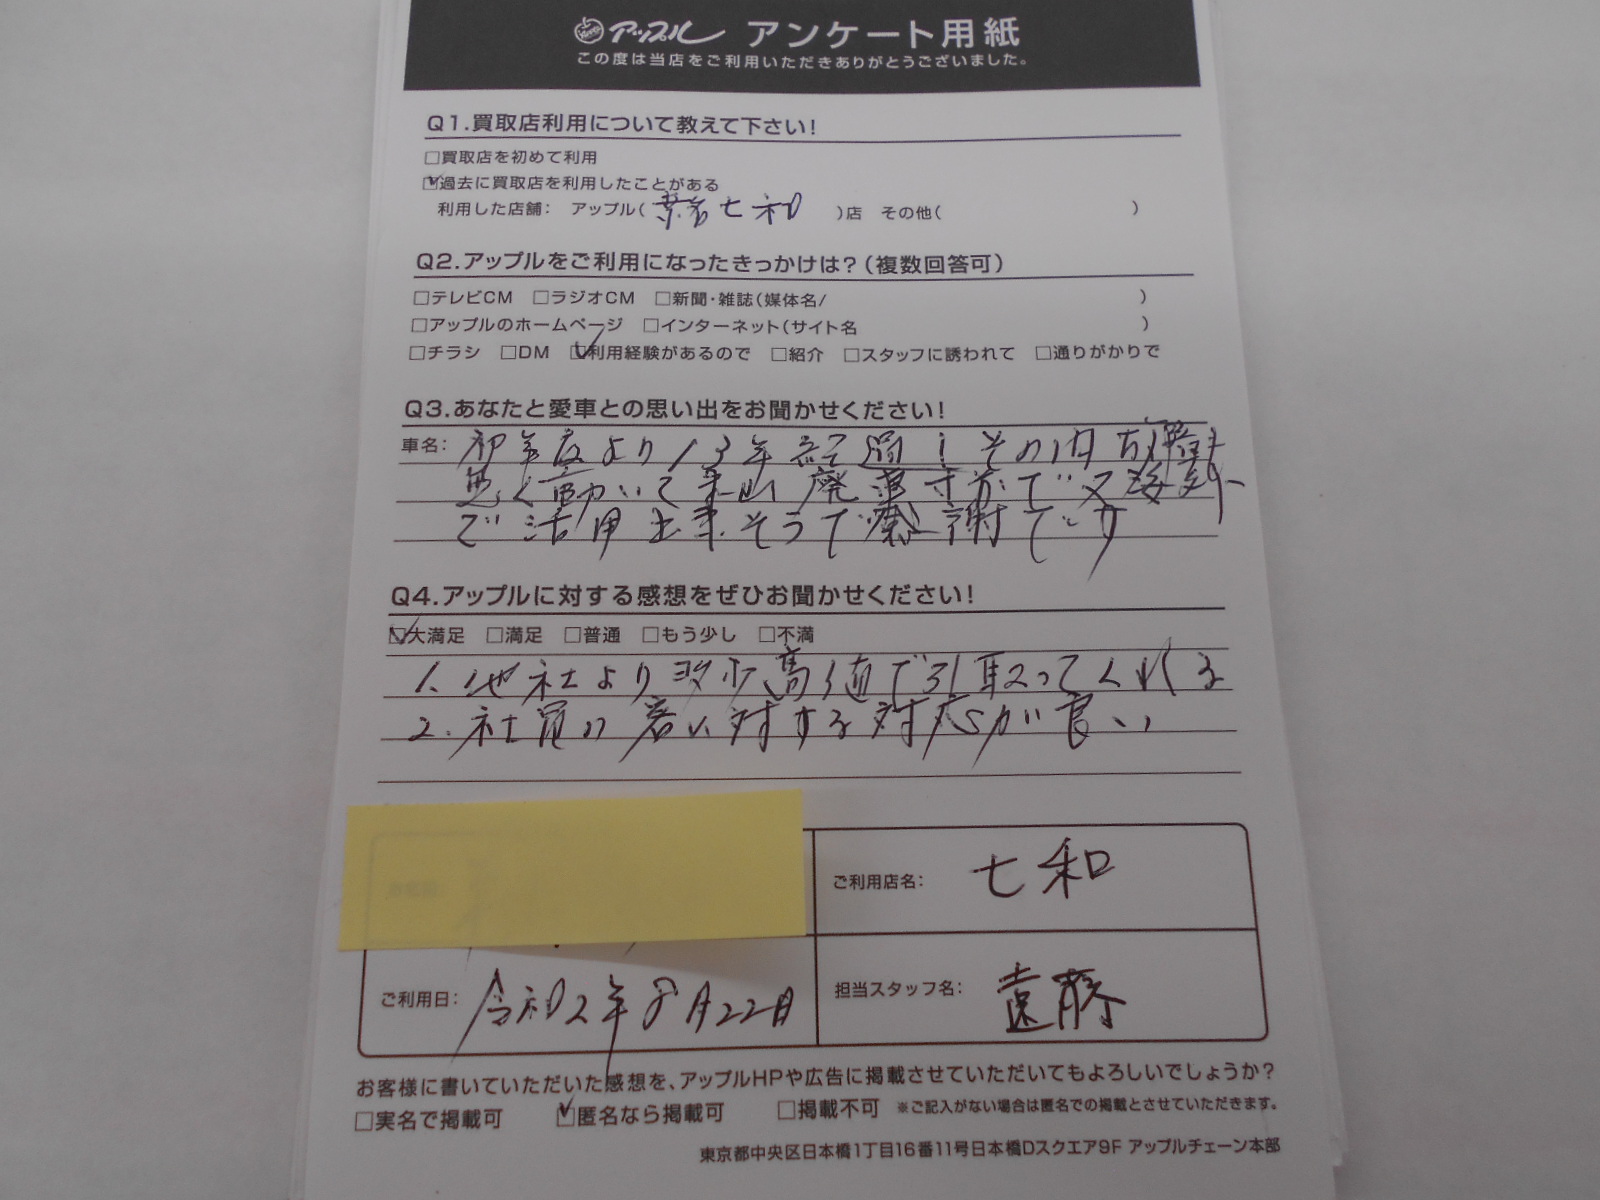 アップル アンケート用紙
この度は当店をご利用いただきありがとうございました。
Q1.買取店利用について教えて下さい!
□買取店を初めて利用
☑過去に買取店を利用したことがある
利用した店舗: アップル(桑名七和)店 その他( )
Q2.アップルをご利用になったきっかけは?(複数回答可)
□テレビCM □ラジオCM □新聞・雑誌(媒体名/ )
□アップルのホームページ □インターネット(サイト名 )
□チラシ □DM ☑利用経験があるので □紹介 □スタッフに誘われて □通りがかりで
Q3.あなたと愛車との思い出をお聞かせください!
車名: 初年度より13年経過しその内故障も
無く動いて来山廃車寸前で又海外
で活用出来そうで感謝です
Q4.アップルに対する感想をぜひお聞かせください!
☑大満足 □満足 □普通 □もう少し □不満
1.他社より多少高値で引取ってくれる
2.社員の客に対する対応が良い
ご利用店名: 七和
ご利用日: 令和2年8月22日
担当スタッフ名: 遠藤
お客様に書いていただいた感想を、アップルHPや広告に掲載させていただいてもよろしいでしょうか?
□実名で掲載可 ☑匿名なら掲載可 □掲載不可 ※ご記入がない場合は匿名での掲載とさせていただきます。
東京都中央区日本橋1丁目16番11号日本橋Dスクエア9F アップルチェーン本部